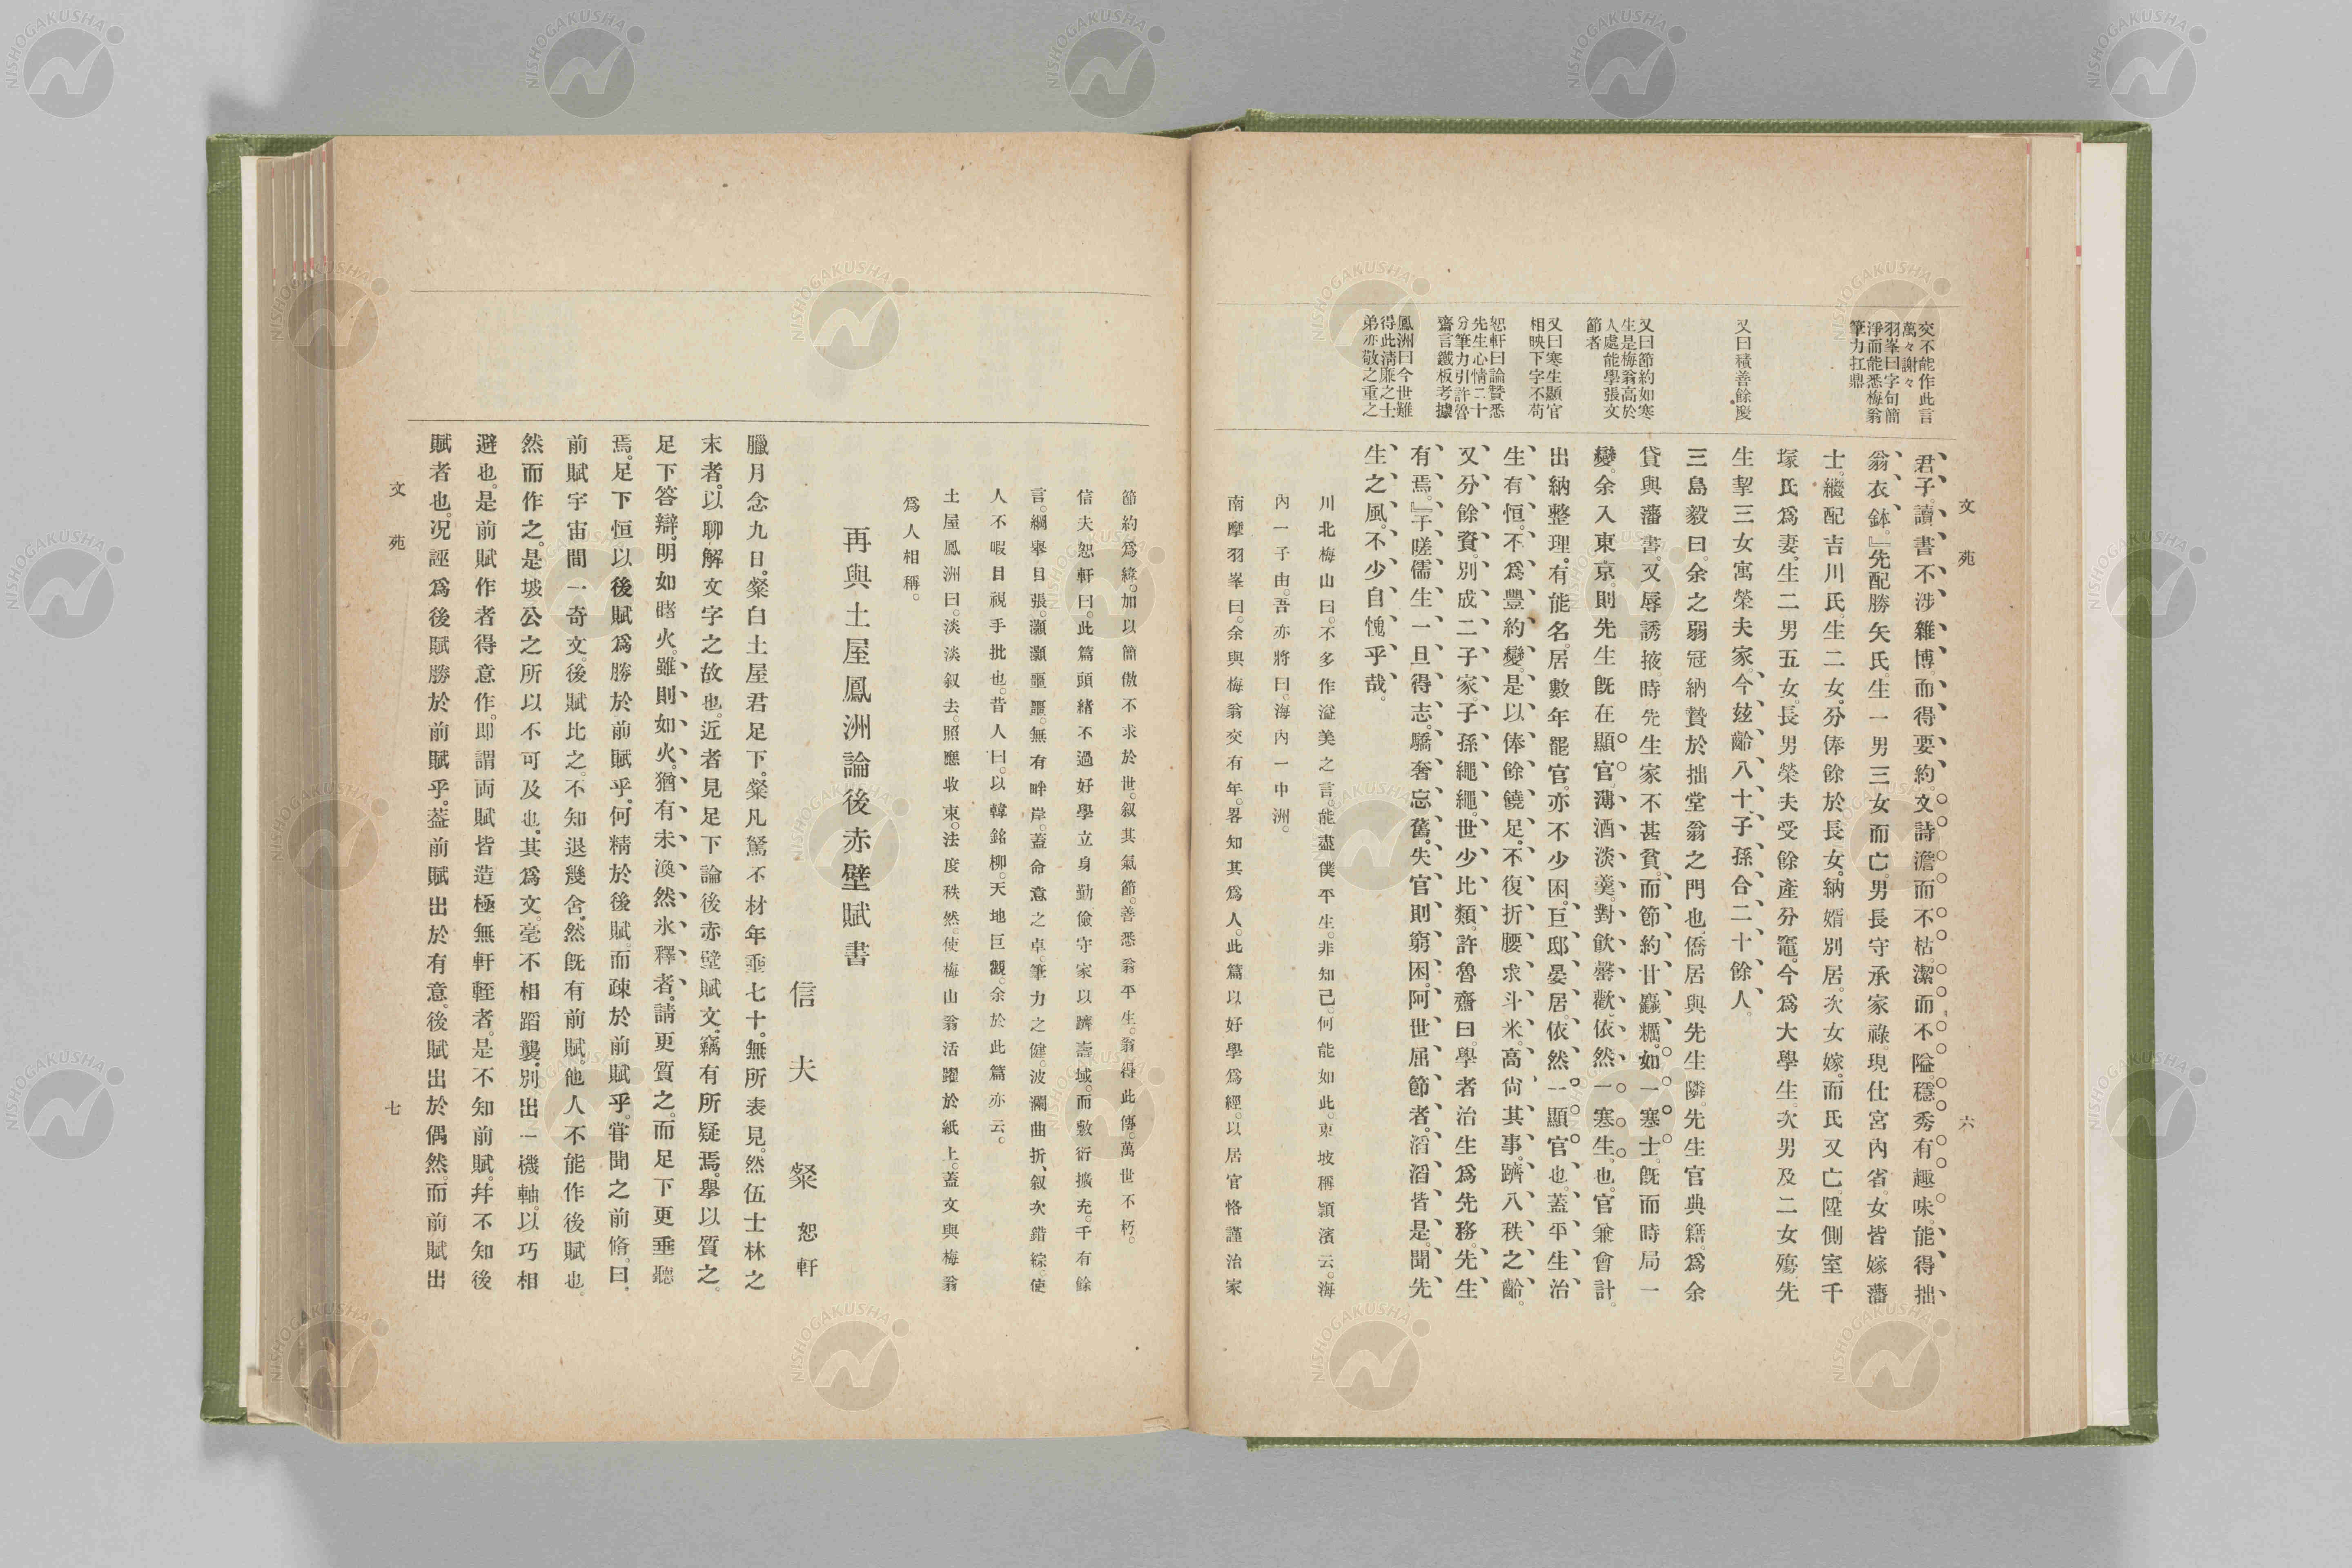 文苑
六
交不能作此言
萬々謝々
羽峯曰字句簡
淨而能悉梅翁
筆力扛鼎
又曰積善餘慶
又曰節約如寒
生是梅翁高於
人處能學張文
節者
又曰寒生顯官
相映下字不苟
恕軒曰論贊悉
先生心情二十
分筆力引許魯
齋言鐵板考據
鳳洲曰今世難
得此淸廉之士
弟亦敬之重之
君子。讀書不涉雜博。而得要約。文詩澹而不枯。潔而不隘。穩秀有趣味。能得拙
翁衣鉢。』先配勝矢氏。生一男三女而亡。男長守承家祿。現仕宮內省。女皆嫁藩
士。繼配吉川氏。生二女。分俸餘於長女。納婿別居。次女嫁。而氏又亡。陞側室千
塚氏爲妻。生二男五女。長男榮夫受餘產分竈。今爲大學生。次男及二女殤。先
生挈三女寓榮夫家。今玆齡八十。子孫合二十餘人。
三島毅曰。余之弱冠納贄於拙堂翁之門也。僑居與先生隣。先生官典籍。爲余
貸與藩書。又辱誘掖。時先生家不甚貧。而節約甘麤糲。如一寒士。旣而時局一
變。余入東京。則先生旣在顯官。薄酒淡羹。對飮罄歡。依然一寒生也。官兼會計。
出納整理。有能名。居數年罷官。亦不少困。巨邸晏居。依然一顯官也。蓋平生治
生有恒。不爲豐約變。是以俸餘饒足。不復折腰求斗米。高尙其事。躋八秩之齡。
又分餘資。別成二子家。子孫繩繩。世少比類。許魯齋曰。學者治生爲先務。先生
有焉。』于嗟儒生一旦得志。驕奢忘舊。失官則窮困。阿世屈節者。滔滔皆是。聞先
生之風。不少自愧乎哉。
川北梅山曰。不多作溢美之言。能盡僕平生。非知己。何能如此。東坡稱潁濱云。海
內一子由。吾亦將曰。海內一中洲。
南摩羽峯曰。余與梅翁交有年。畧知其爲人。此篇以好學爲經。以居官恪謹治家
節約爲緯。加以簡傲不求於世。叙其氣節。善悉翁平生。翁得此傳。萬世不朽。
信夫恕軒曰。此篇頭緖不過好學立身勤儉守家以躋壽域。而敷衍擴充。千有餘
言。綱擧目張。灝灝噩噩。無有畔岸。蓋命意之卓。筆力之健。波瀾曲折、叙次錯綜。使
人不暇目視手批也。昔人曰。以韓銘柳。天地巨觀。余於此篇亦云。
土屋鳳洲曰。淡淡叙去。照應收束。法度秩然。使梅山翁活躍於紙上。蓋文與梅翁
爲人相稱。
再與土屋鳳洲論後赤壁賦書
信夫粲 恕軒
臘月念九日。粲白土屋君足下。粲凡駑不材年垂七十。無所表見。然伍士林之
末者。以聊解文字之故也。近者見足下論後赤壁賦文。竊有所疑焉。擧以質之。
足下答辯。明如睹火。雖則如火。猶有未渙然氷釋者。請更質之。而足下更垂聽
焉。足下恒以後賦爲勝於前賦乎。何精於後賦。而疎於前賦乎。甞聞之前脩。曰。
前賦宇宙間一奇文。後賦比之。不知退幾舍。然旣有前賦。他人不能作後賦也。
然而作之。是坡公之所以不可及也。其爲文。毫不相蹈襲。別出一機軸。以巧相
避也。是前賦作者得意作。卽謂両賦皆造極無軒輊者。是不知前賦。幷不知後
賦者也。况誣爲後賦勝於前賦乎。葢前賦出於有意。後賦出於偶然。而前賦出
文苑
七